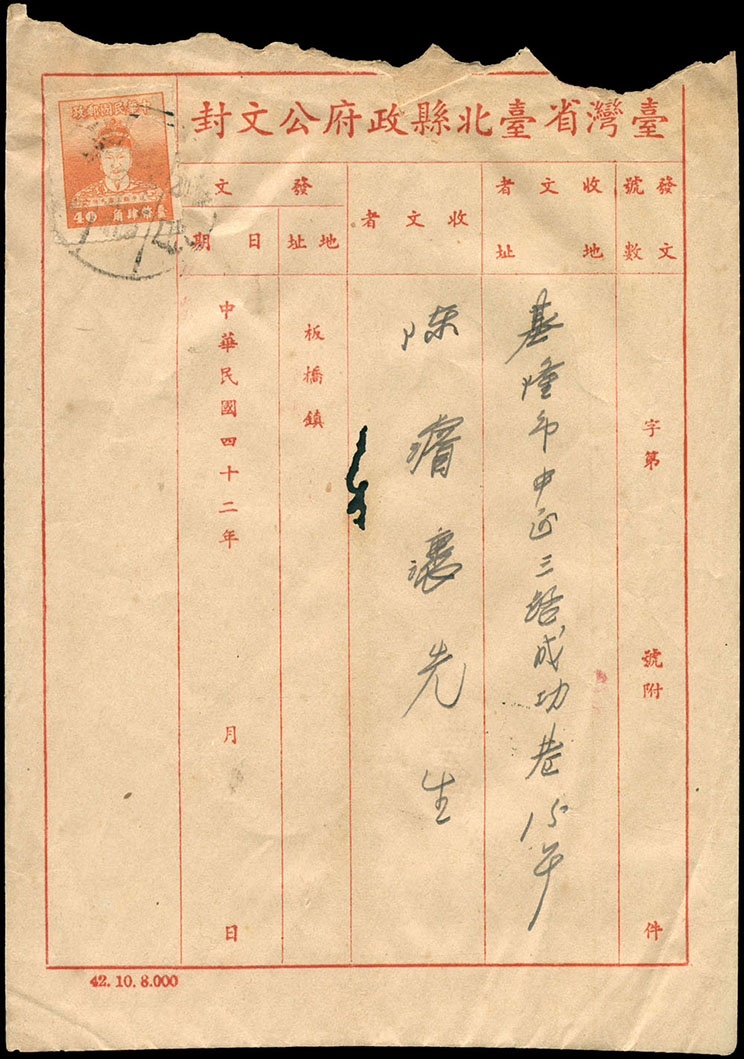 臺灣省臺北縣政府公文封
中華民國郵政
40
發文號數
字第 號附 件
收文者地址
基隆市中正三路成功巷15号
收文者
陳 先生
發文
地址
板橋鎮
日期
中華民國四十二年 月 日
42.10.8.000